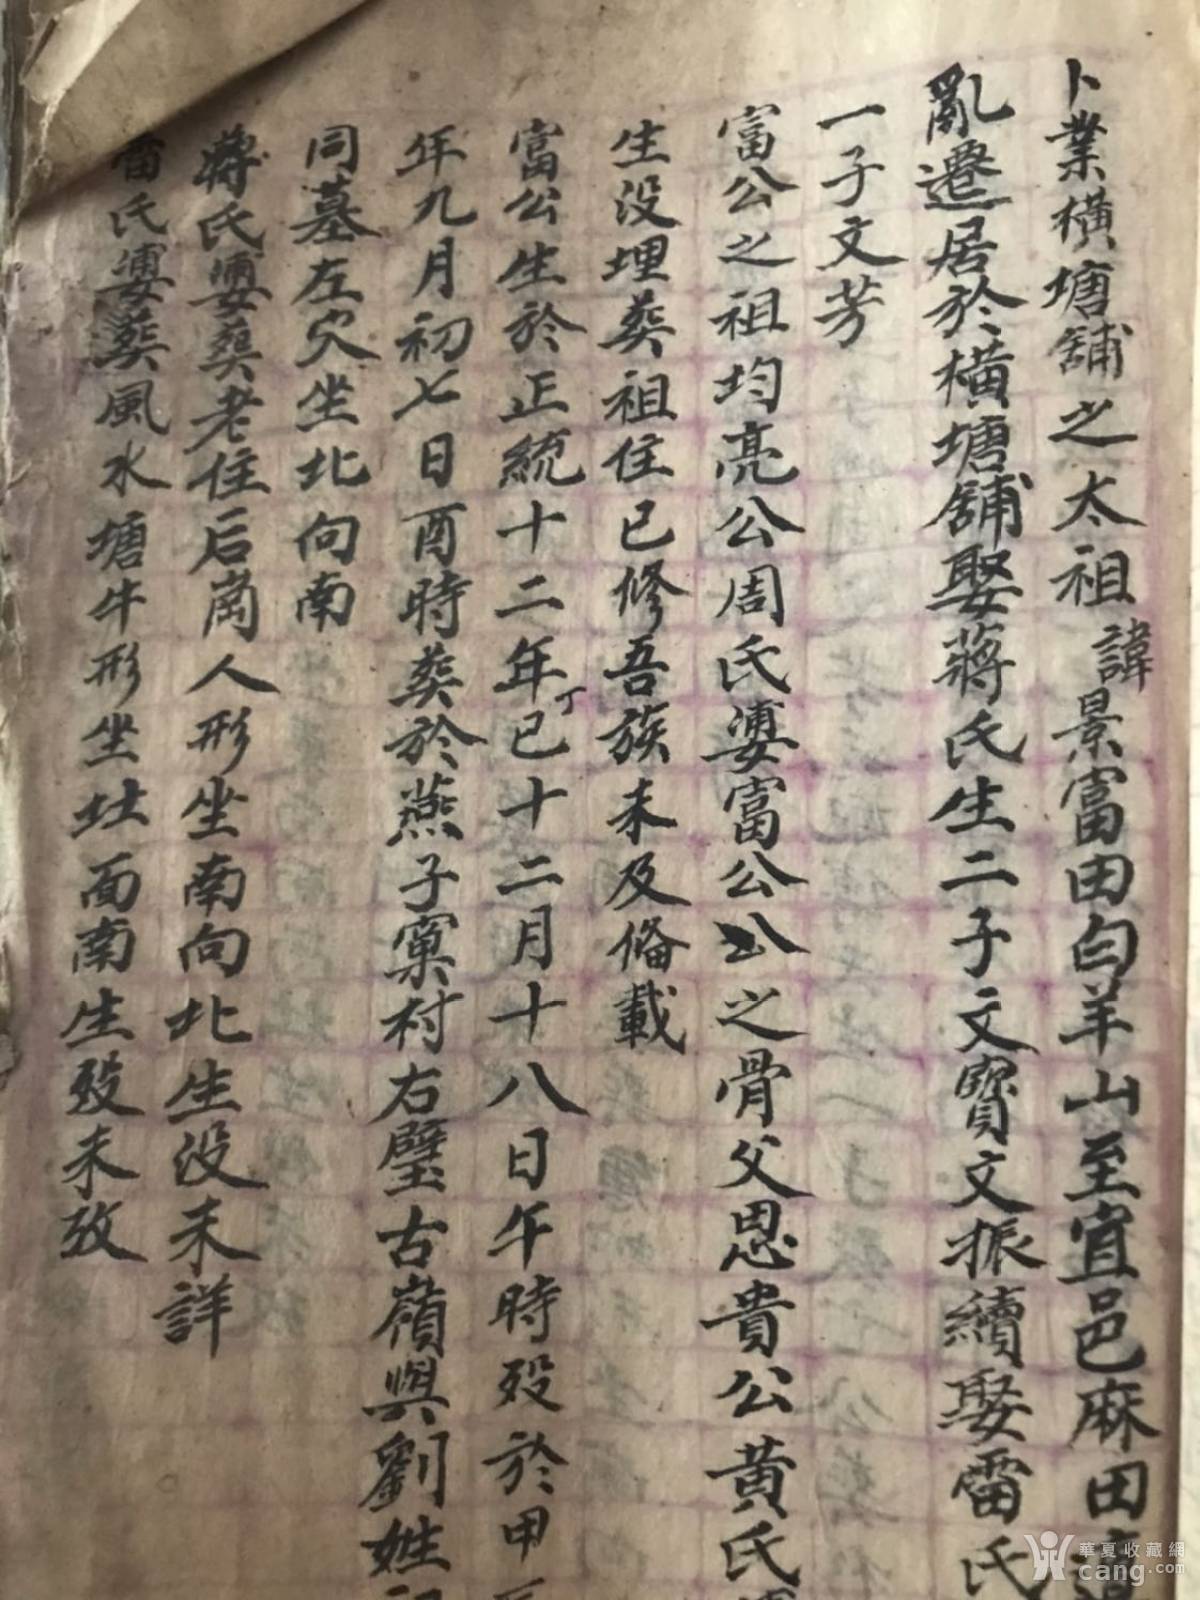 卜業橫塘舖之太祖諱景富田白羊山至宜邑麻田遭
亂遷居於橫塘舖娶蔣氏生二子文寶文振續娶雷氏
一子文芳
富公之祖均亮公周氏婆富公公之骨父思貴公黄氏
生没埋葵祖住已修吾族未及俻載
富公生於正統十二年丁已十二月十八日午時殁於甲
年九月初七日酉時葵於燕子窠村右壁古嶺與劉姓
同墓左穴坐北向南
蔣氏婆葵老住后崗人形坐南向北生没未詳
雷氏婆葵風水塘牛形坐北面南生殁未攷
華夏收藏網
cang.com